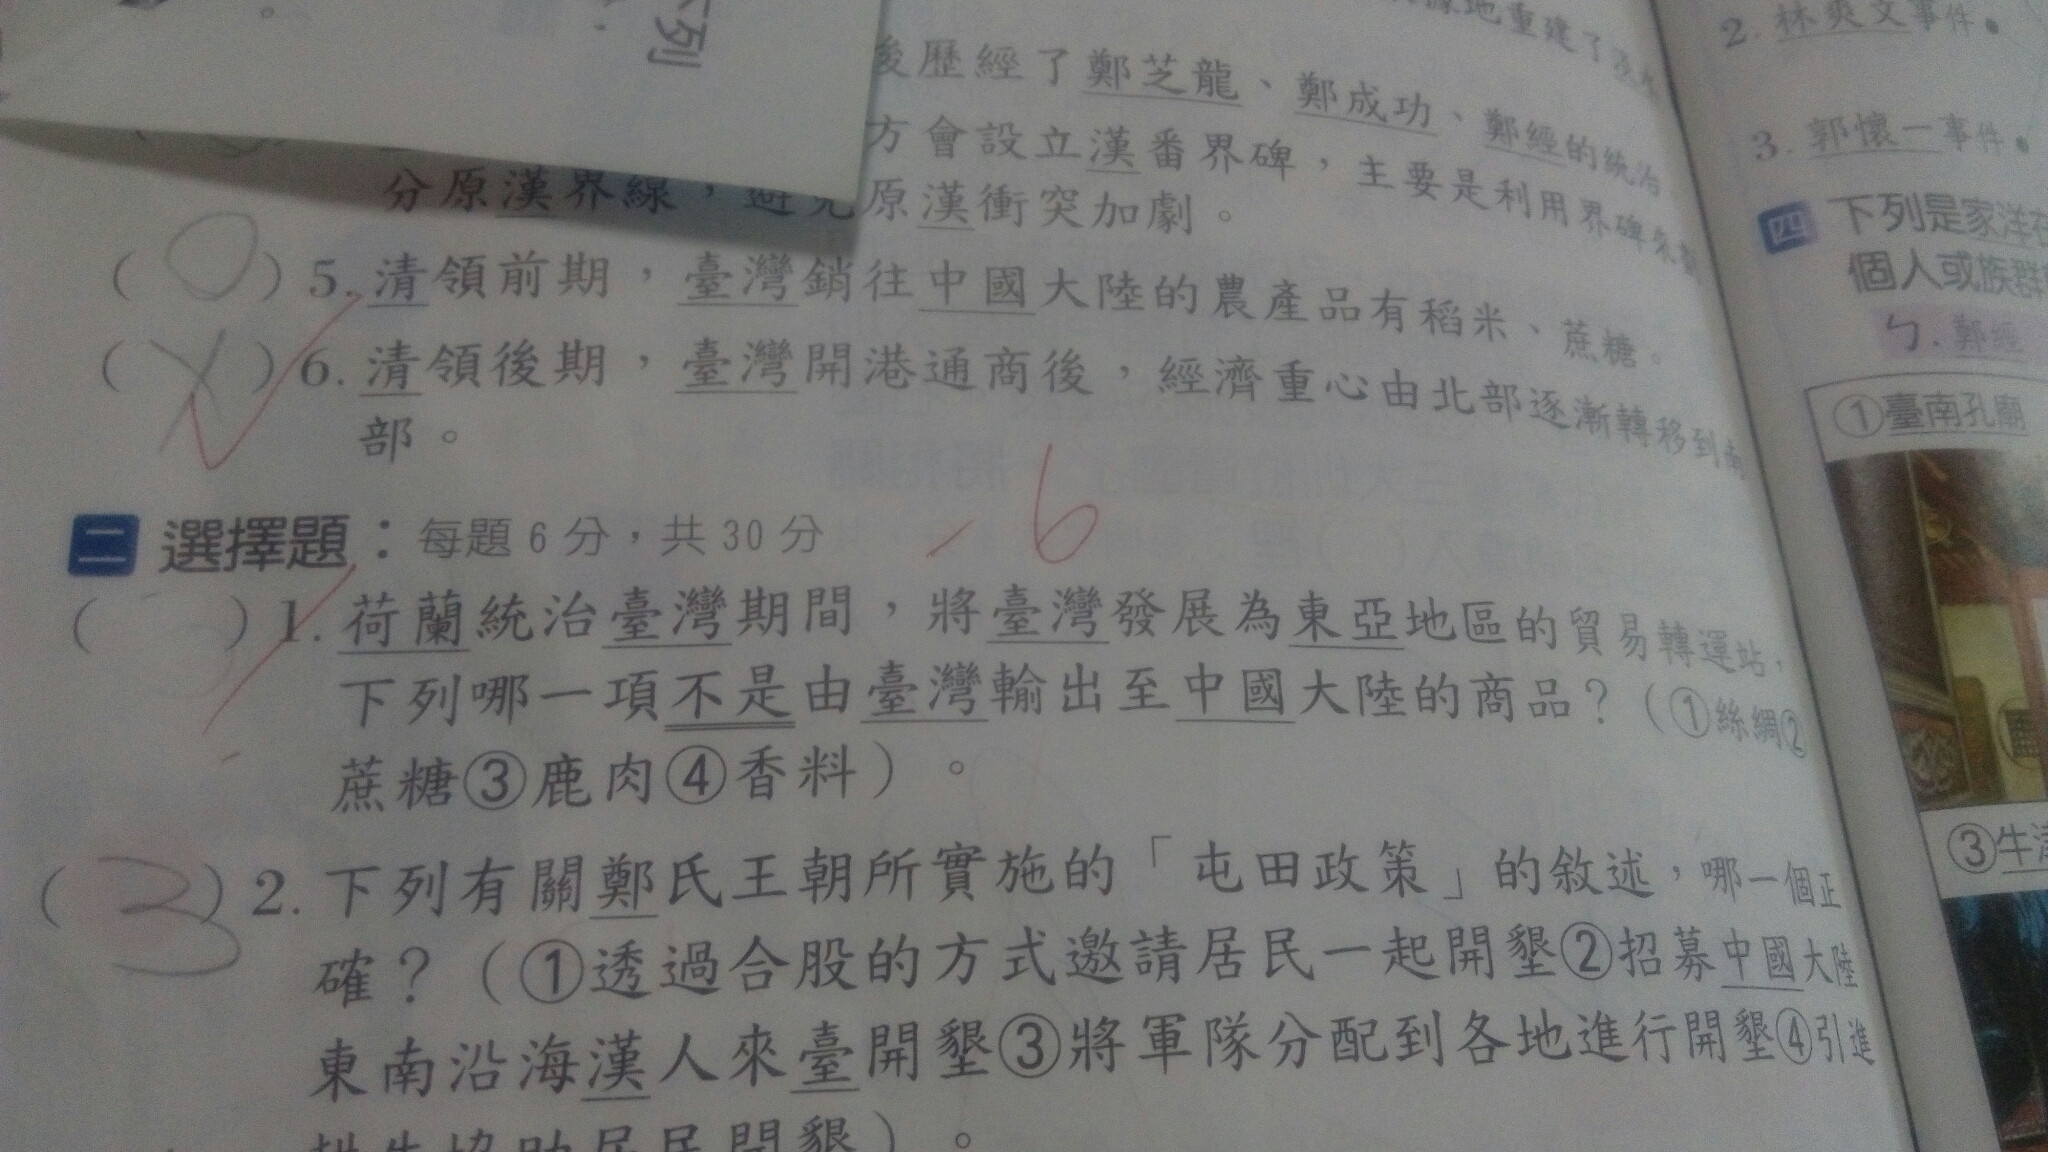 下列
據地重建了
後歷經了鄭芝龍、鄭成功、鄭經的統治
方會設立漢番界碑，主要是利用界碑來
分原漢界線，避免原漢衝突加劇。
(○)5.清領前期，臺灣銷往中國大陸的農產品有稻米、蔗糖。
(X)6.清領後期，臺灣開港通商後，經濟重心由北部逐漸轉移到南
部。
二 選擇題：每題6分，共30分
-6
( )1.荷蘭統治臺灣期間，將臺灣發展為東亞地區的貿易轉運站，
下列哪一項不是由臺灣輸出至中國大陸的商品？（①絲綢②
蔗糖③鹿肉④香料）。
(3)2.下列有關鄭氏王朝所實施的「屯田政策」的敘述，哪一個正
確？（①透過合股的方式邀請居民一起開墾②招募中國大陸
東南沿海漢人來臺開墾③將軍隊分配到各地進行開墾④引進
耕牛協助居民開墾）。
2.林爽文事件。
3.郭懷一事件。
四 下列是家洋在
個人或族群
ㄅ.鄭經
①臺南孔廟
③牛